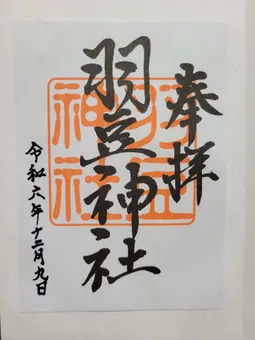 奉拝
羽豆神社
羽豆
神社
令和六年十二月九日